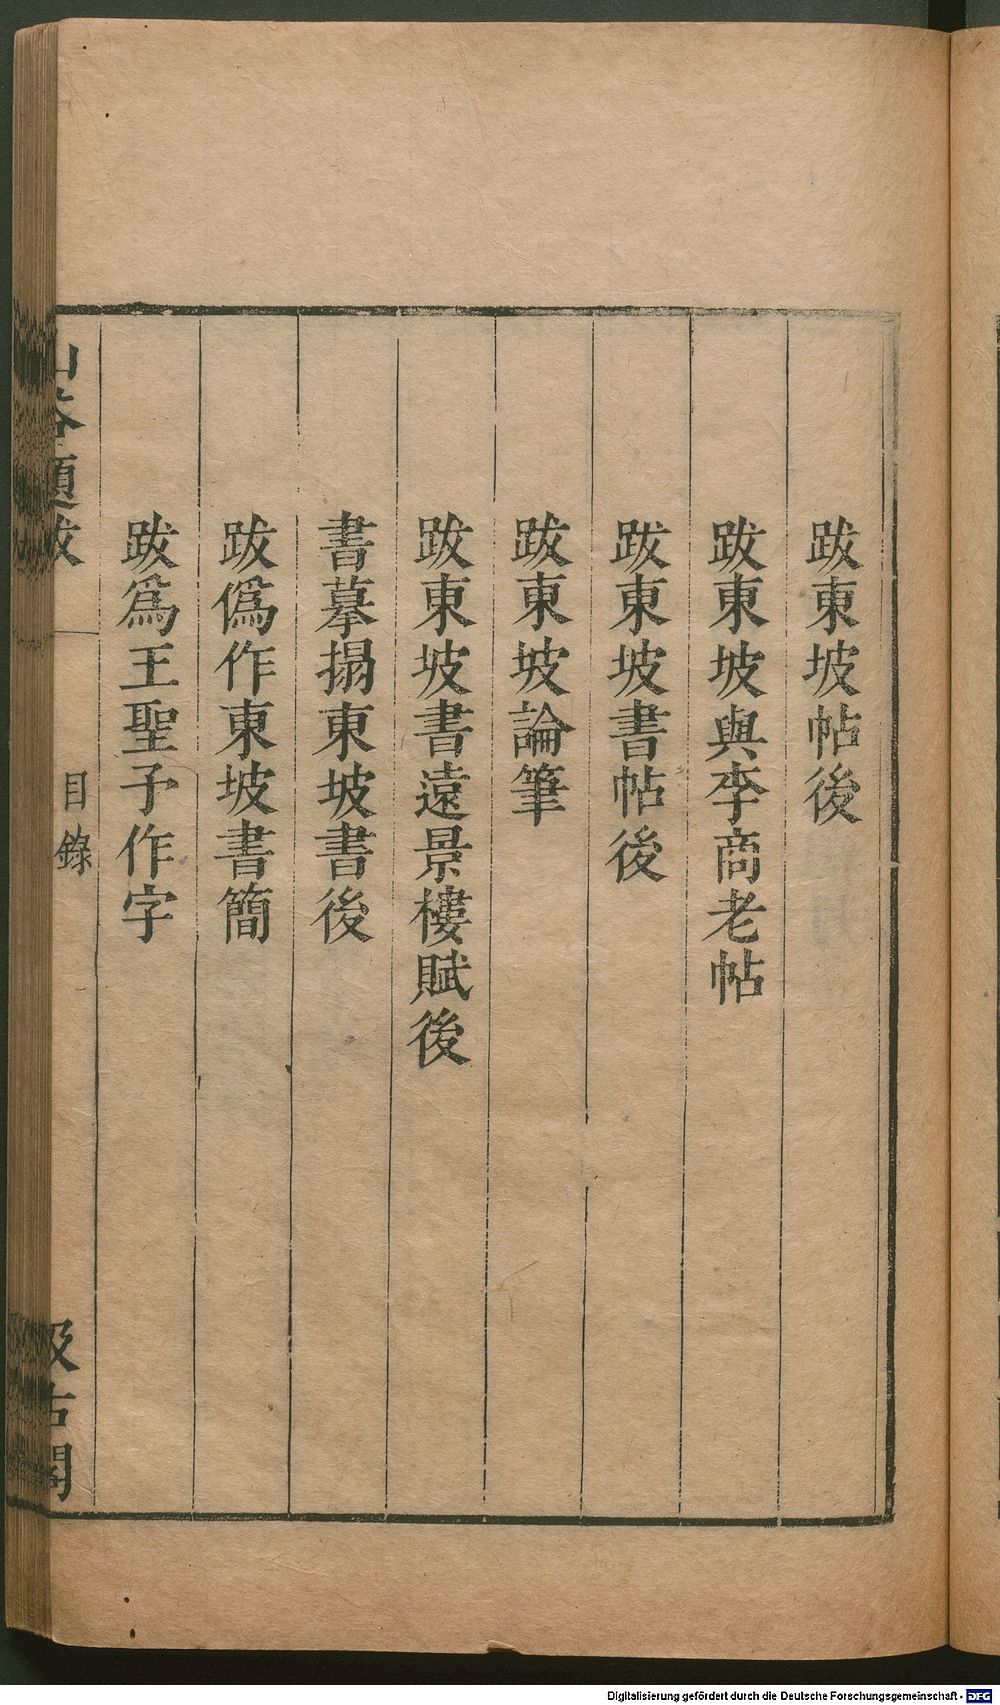 跋東坡帖後
跋東坡與李商老帖
跋東坡書帖後
跋東坡論筆
跋東坡書遠景樓賦後
書摹搨東坡書後
跋僞作東坡書簡
跋爲王聖予作字
山谷題跋
目錄
汲古閣
Digitalisierung gefördert durch die Deutsche Forschungsgemeinschaft - DFG